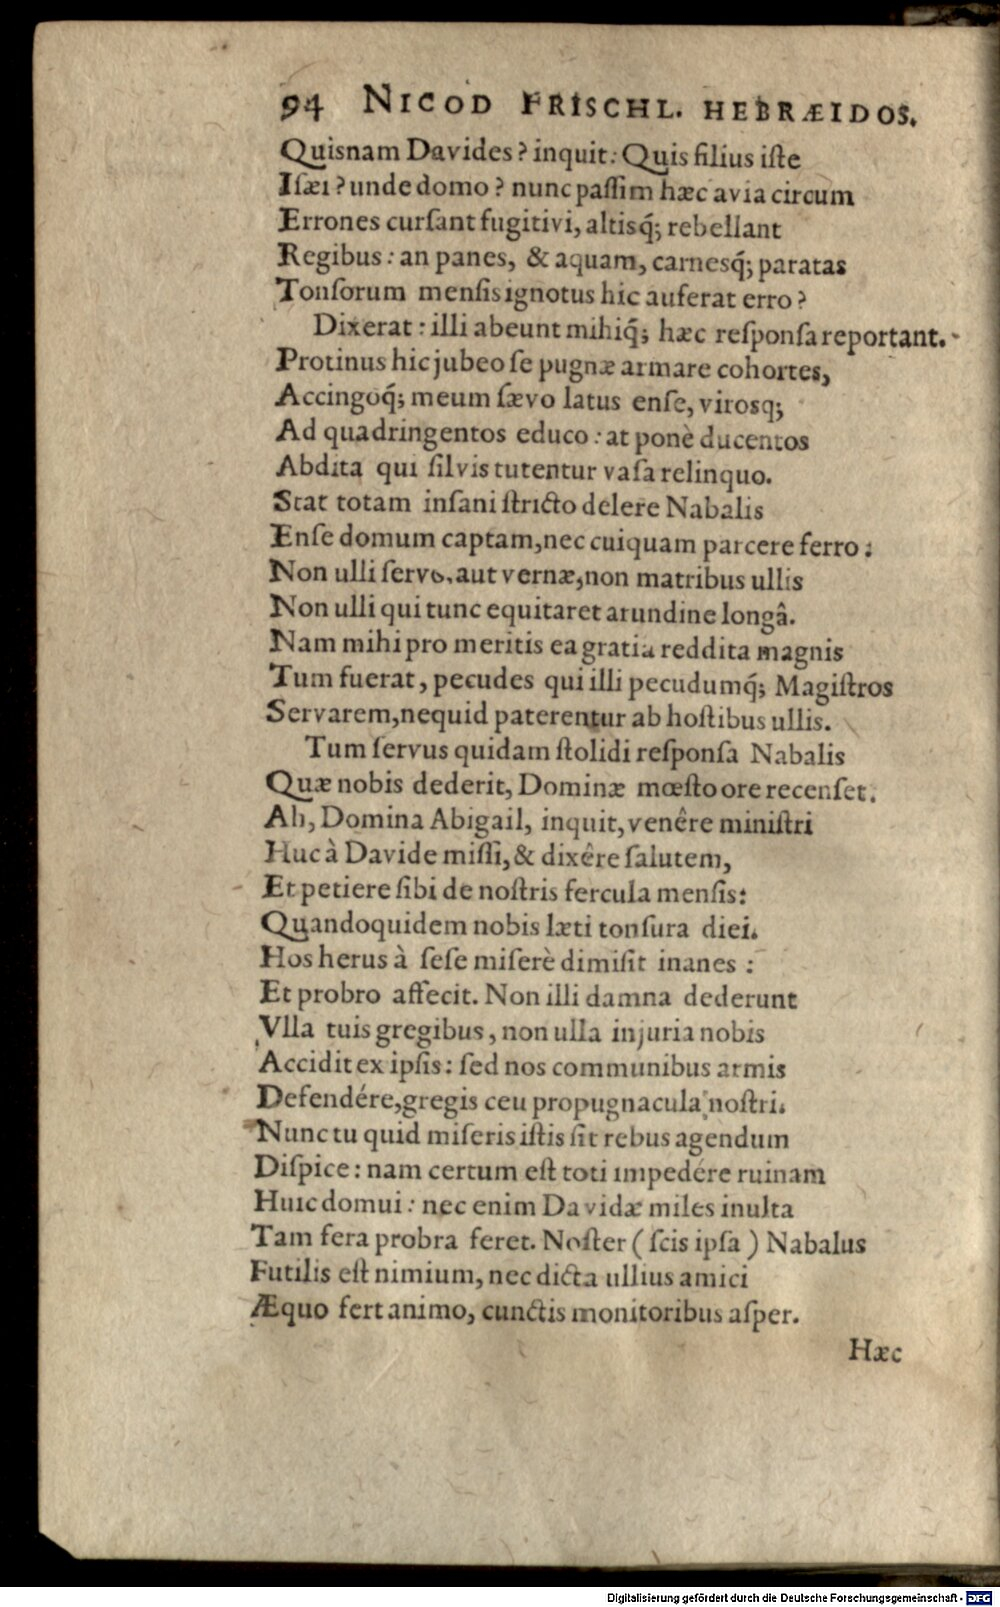 94 NICOD FRISCHL. HEBRÆIDOS.
Quisnam Davides? inquit: Quis filius iſte
Iſæi? unde domo? nunc paſſim hæc avia circum
Errones curſant fugitivi, altisq́; rebellant
Regibus: an panes, & aquam, carnesq́; paratas
Tonſorum menſis ignotus hic auferat erro?
Dixerat: illi abeunt mihiq́; hæc reſponſa reportant.
Protinus hic jubeo ſe pugnæ armare cohortes,
Accingoq́; meum ſævo latus enſe, virosq;
Ad quadringentos educo: at ponè ducentos
Abdita qui ſilvis tutentur vaſa relinquo.
Stat totam inſani ſtricto delere Nabalis
Enſe domum captam, nec cuiquam parcere ferro:
Non ulli ſervo, aut vernæ, non matribus ullis
Non ulli qui tunc equitaret arundine longâ.
Nam mihi pro meritis ea gratia reddita magnis
Tum fuerat, pecudes qui illi pecudumq́; Magiſtros
Servarem, nequid paterentur ab hoſtibus ullis.
Tum ſervus quidam ſtolidi reſponſa Nabalis
Quæ nobis dederit, Dominæ mœſto ore recenſet.
Ah, Domina Abigail, inquit, venêre miniſtri
Huc à Davide miſſi, & dixêre ſalutem,
Et petiere ſibi de noſtris fercula menſis:
Quandoquidem nobis læti tonſura diei.
Hos herus à ſeſe miſerè dimiſit inanes:
Et probro affecit. Non illi damna dederunt
Vlla tuis gregibus, non ulla injuria nobis
Accidit ex ipſis: ſed nos communibus armis
Defendére, gregis ceu propugnacula noſtri.
Nunc tu quid miſeris iſtis ſit rebus agendum
Diſpice: nam certum eſt toti impedére ruinam
Huic domui: nec enim Davidæ miles inulta
Tam fera probra feret. Noſter (ſcis ipſa) Nabalus
Futilis eſt nimium, nec dicta ullius amici
Æquo fert animo, cunctis monitoribus aſper.
Hæc
Digitalisierung gefördert durch die Deutsche Forschungsgemeinschaft - DFG